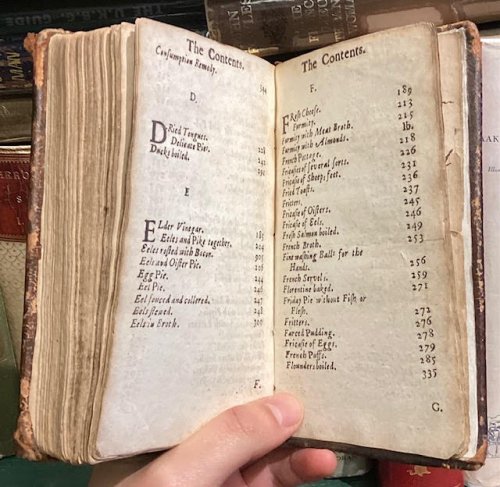 The Contents.
Consumption Remedy.
D.
DRied Tongues.
Delicate Pies.
Ducks boiled.
E
ELder Vinegar. 185
Eeles and Pike together. 204
Eeles rosted with Bacon. 305
Eels and Oister Pie. 206
Egg Pie. 244
Eel Pie. 246
Eel souced and collered. 247
Eels stewed. 248
Eels in Broth. 300
F.
The Contents.
F.
FResh Cheese. 189
Furmity. 213
Furmity with Meat Broth. 215
Furmity with Almonds. Ib.
French Pottage. 218
Fricasies of several sorts. 226
Fricasie of Sheeps feet. 231
Fried Toasts. 236
Fritters. 237
Fricasie of Oisters. 245
Fricasie of Eels. 246
Fresh Salmon boiled. 249
French Broth. 253
Fine washing Balls for the
Hands. 256
French Servels. 259
Florentine baked. 271
Friday Pie without Fish or
Flesh. 272
Fritters. 276
Farced Pudding. 278
Fricasie of Eggs. 279
French Puffs. 285
Flounders boiled. 335
G.